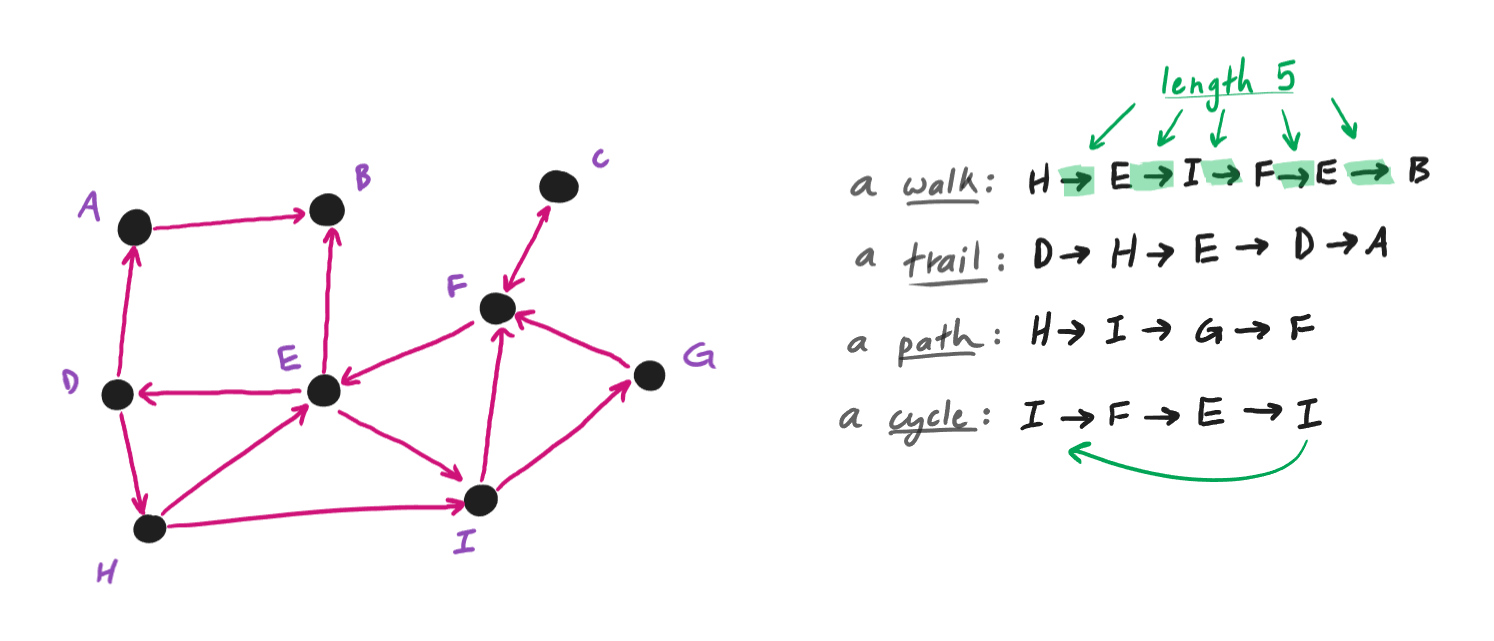 A
B
C
D
E
F
G
H
I
length 5
a walk: H → E → I → F → E → B
a trail: D → H → E → D → A
a path: H → I → G → F
a cycle: I → F → E → I